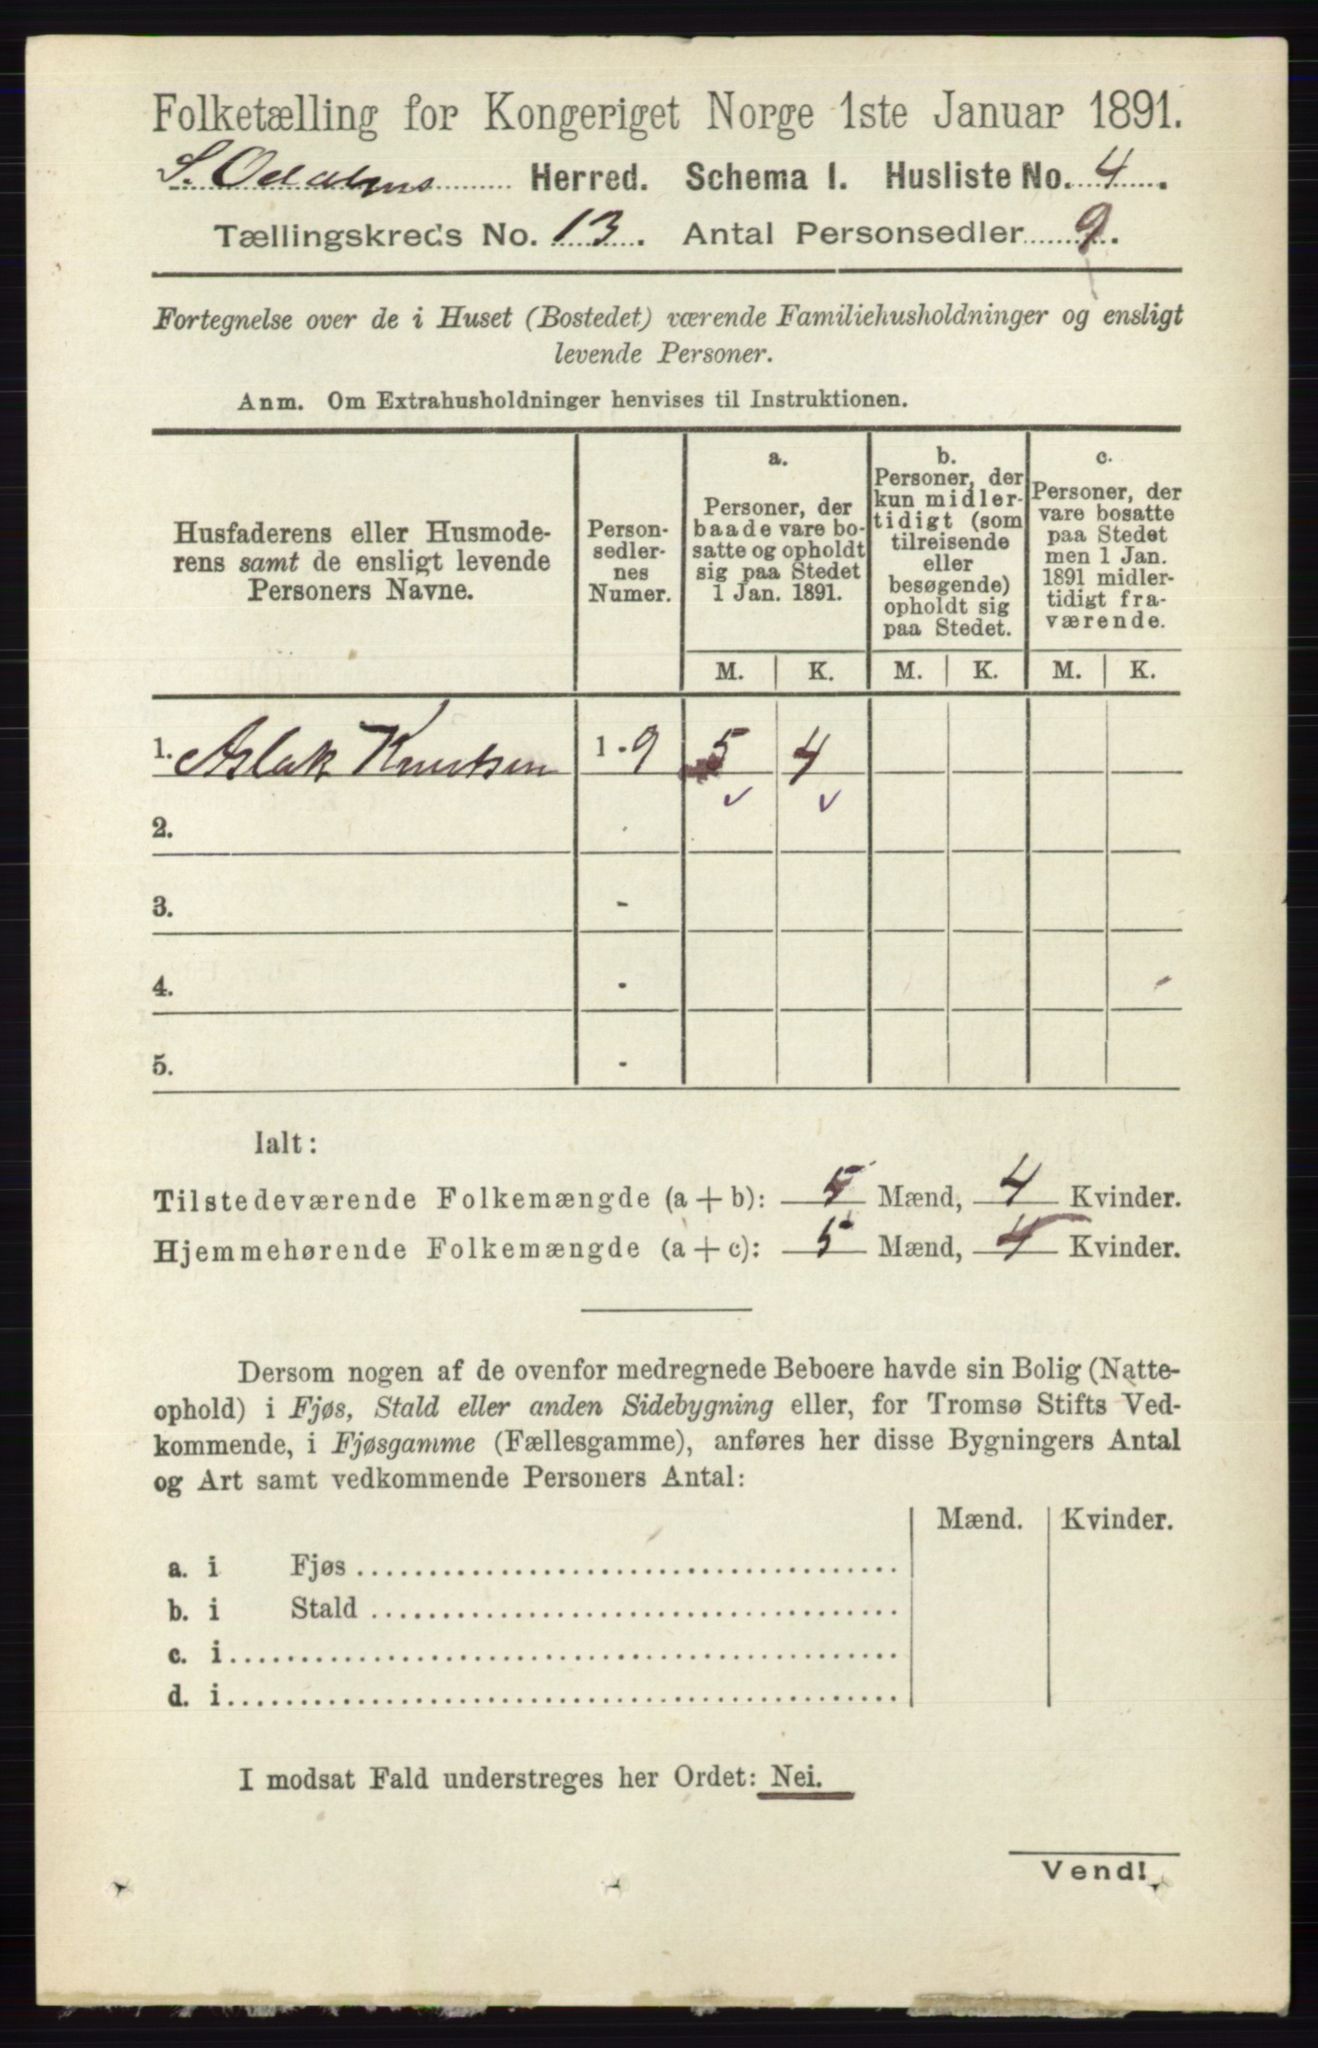 Folketælling for Kongeriget Norge 1ste Januar 1891.
S. Odalens Herred. Schema I. Husliste No. 4.
Tællingskreds No. 13. Antal Personsedler 9.
Fortegnelse over de i Huset (Bostedet) værende Familiehusholdninger og ensligt
levende Personer.
Anm. Om Extrahusholdninger henvises til Instruktionen.
Husfaderens eller Husmode-
rens samt de ensligt levende
Personers Navne.
Person-
sedler-
nes
Numer.
a.
Personer, der
baade vare bo-
satte og opholdt
sig paa Stedet
1 Jan. 1891.
b.
Personer, der
kun midler-
tidigt (som
tilreisende
eller
besøgende)
opholdt sig
paa Stedet.
c.
Personer, der
vare bosatte
paa Stedet
men 1 Jan.
1891 midler-
tidigt fra-
værende.
M. K. M. K. M. K.
1. Aslak Knutsen 1-9 5 4
2.
3. -
4. -
5. -
Ialt:
Tilstedeværende Folkemængde (a + b): 5 Mænd, 4 Kvinder.
Hjemmehørende Folkemængde (a + c): 5 Mænd, 4 Kvinder.
Dersom nogen af de ovenfor medregnede Beboere havde sin Bolig (Natte-
ophold) i Fjøs, Stald eller anden Sidebygning eller, for Tromsø Stifts Ved-
kommende, i Fjøsgamme (Fællesgamme), anføres her disse Bygningers Antal
og Art samt vedkommende Personers Antal:
Mænd. Kvinder.
a. i Fjøs
b. i Stald
c. i
d. i
I modsat Fald understreges her Ordet: Nei.
Vend!